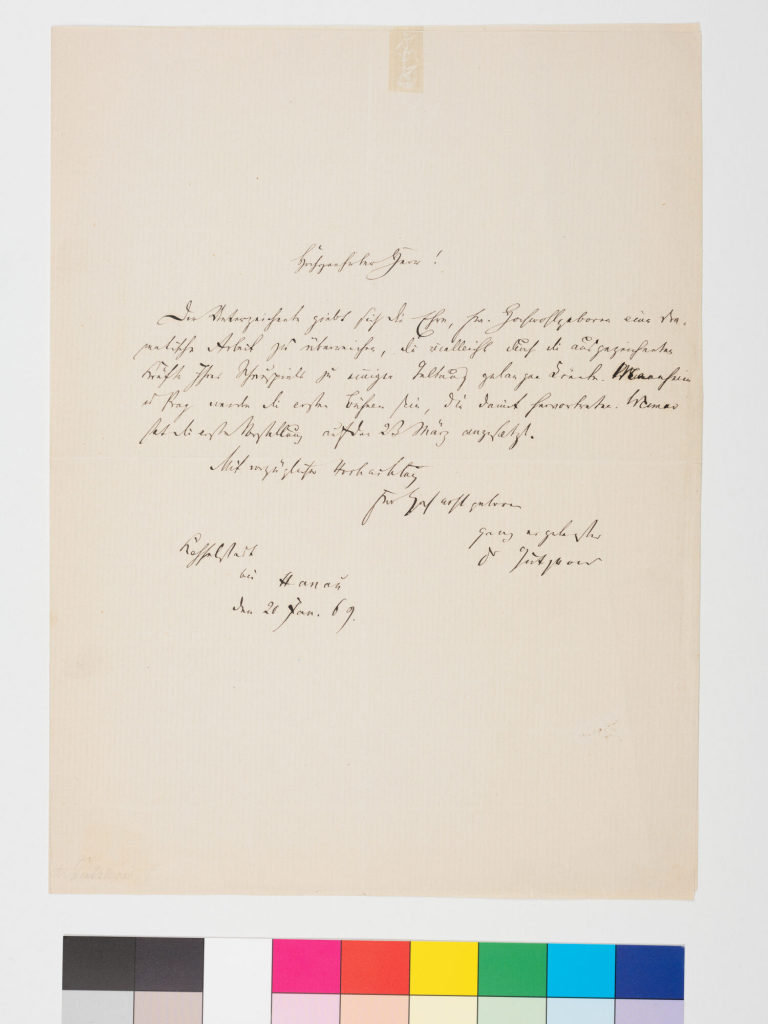 Hochgeehrter Herr!
Der Unterzeichnete giebt sich die Ehre, Ew. Hochwohlgeboren eine dra-
matische Arbeit zu überreichen, die vielleicht durch die ausgezeichneten
Kräfte Ihres Schauspiels zu einiger Geltung gelangen könnte. Mannheim
u Prag werden die ersten Bühnen sein, die damit hervortreten. Weimar
hat die erste Vorstellung auf den 23 März angesetzt.
Mit vorzüglicher Hochachtung
Ew Hochwohlgeboren
ganz ergebenster
Dr Gutzkow
Kesselstadt
bei Hanau
den 20 Jan. 69.